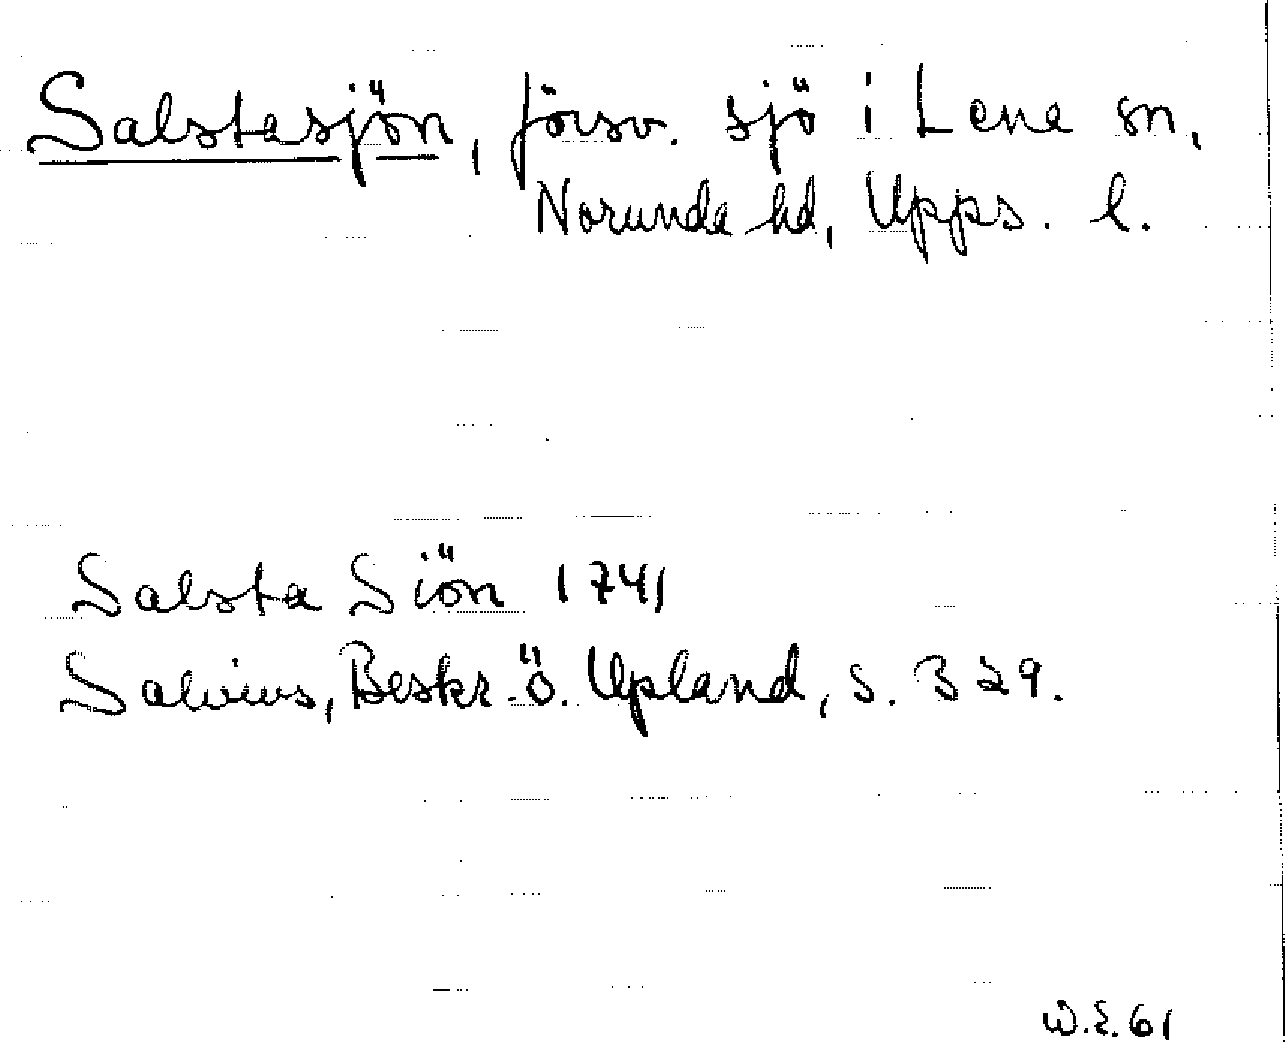 Salstasjön, försv. sjö i Lena sn,
Norunda hd, Upps. l.
Salsta Siön 1741
Salvius, Beskr. ö. Upland, s. 329.
W.E.61